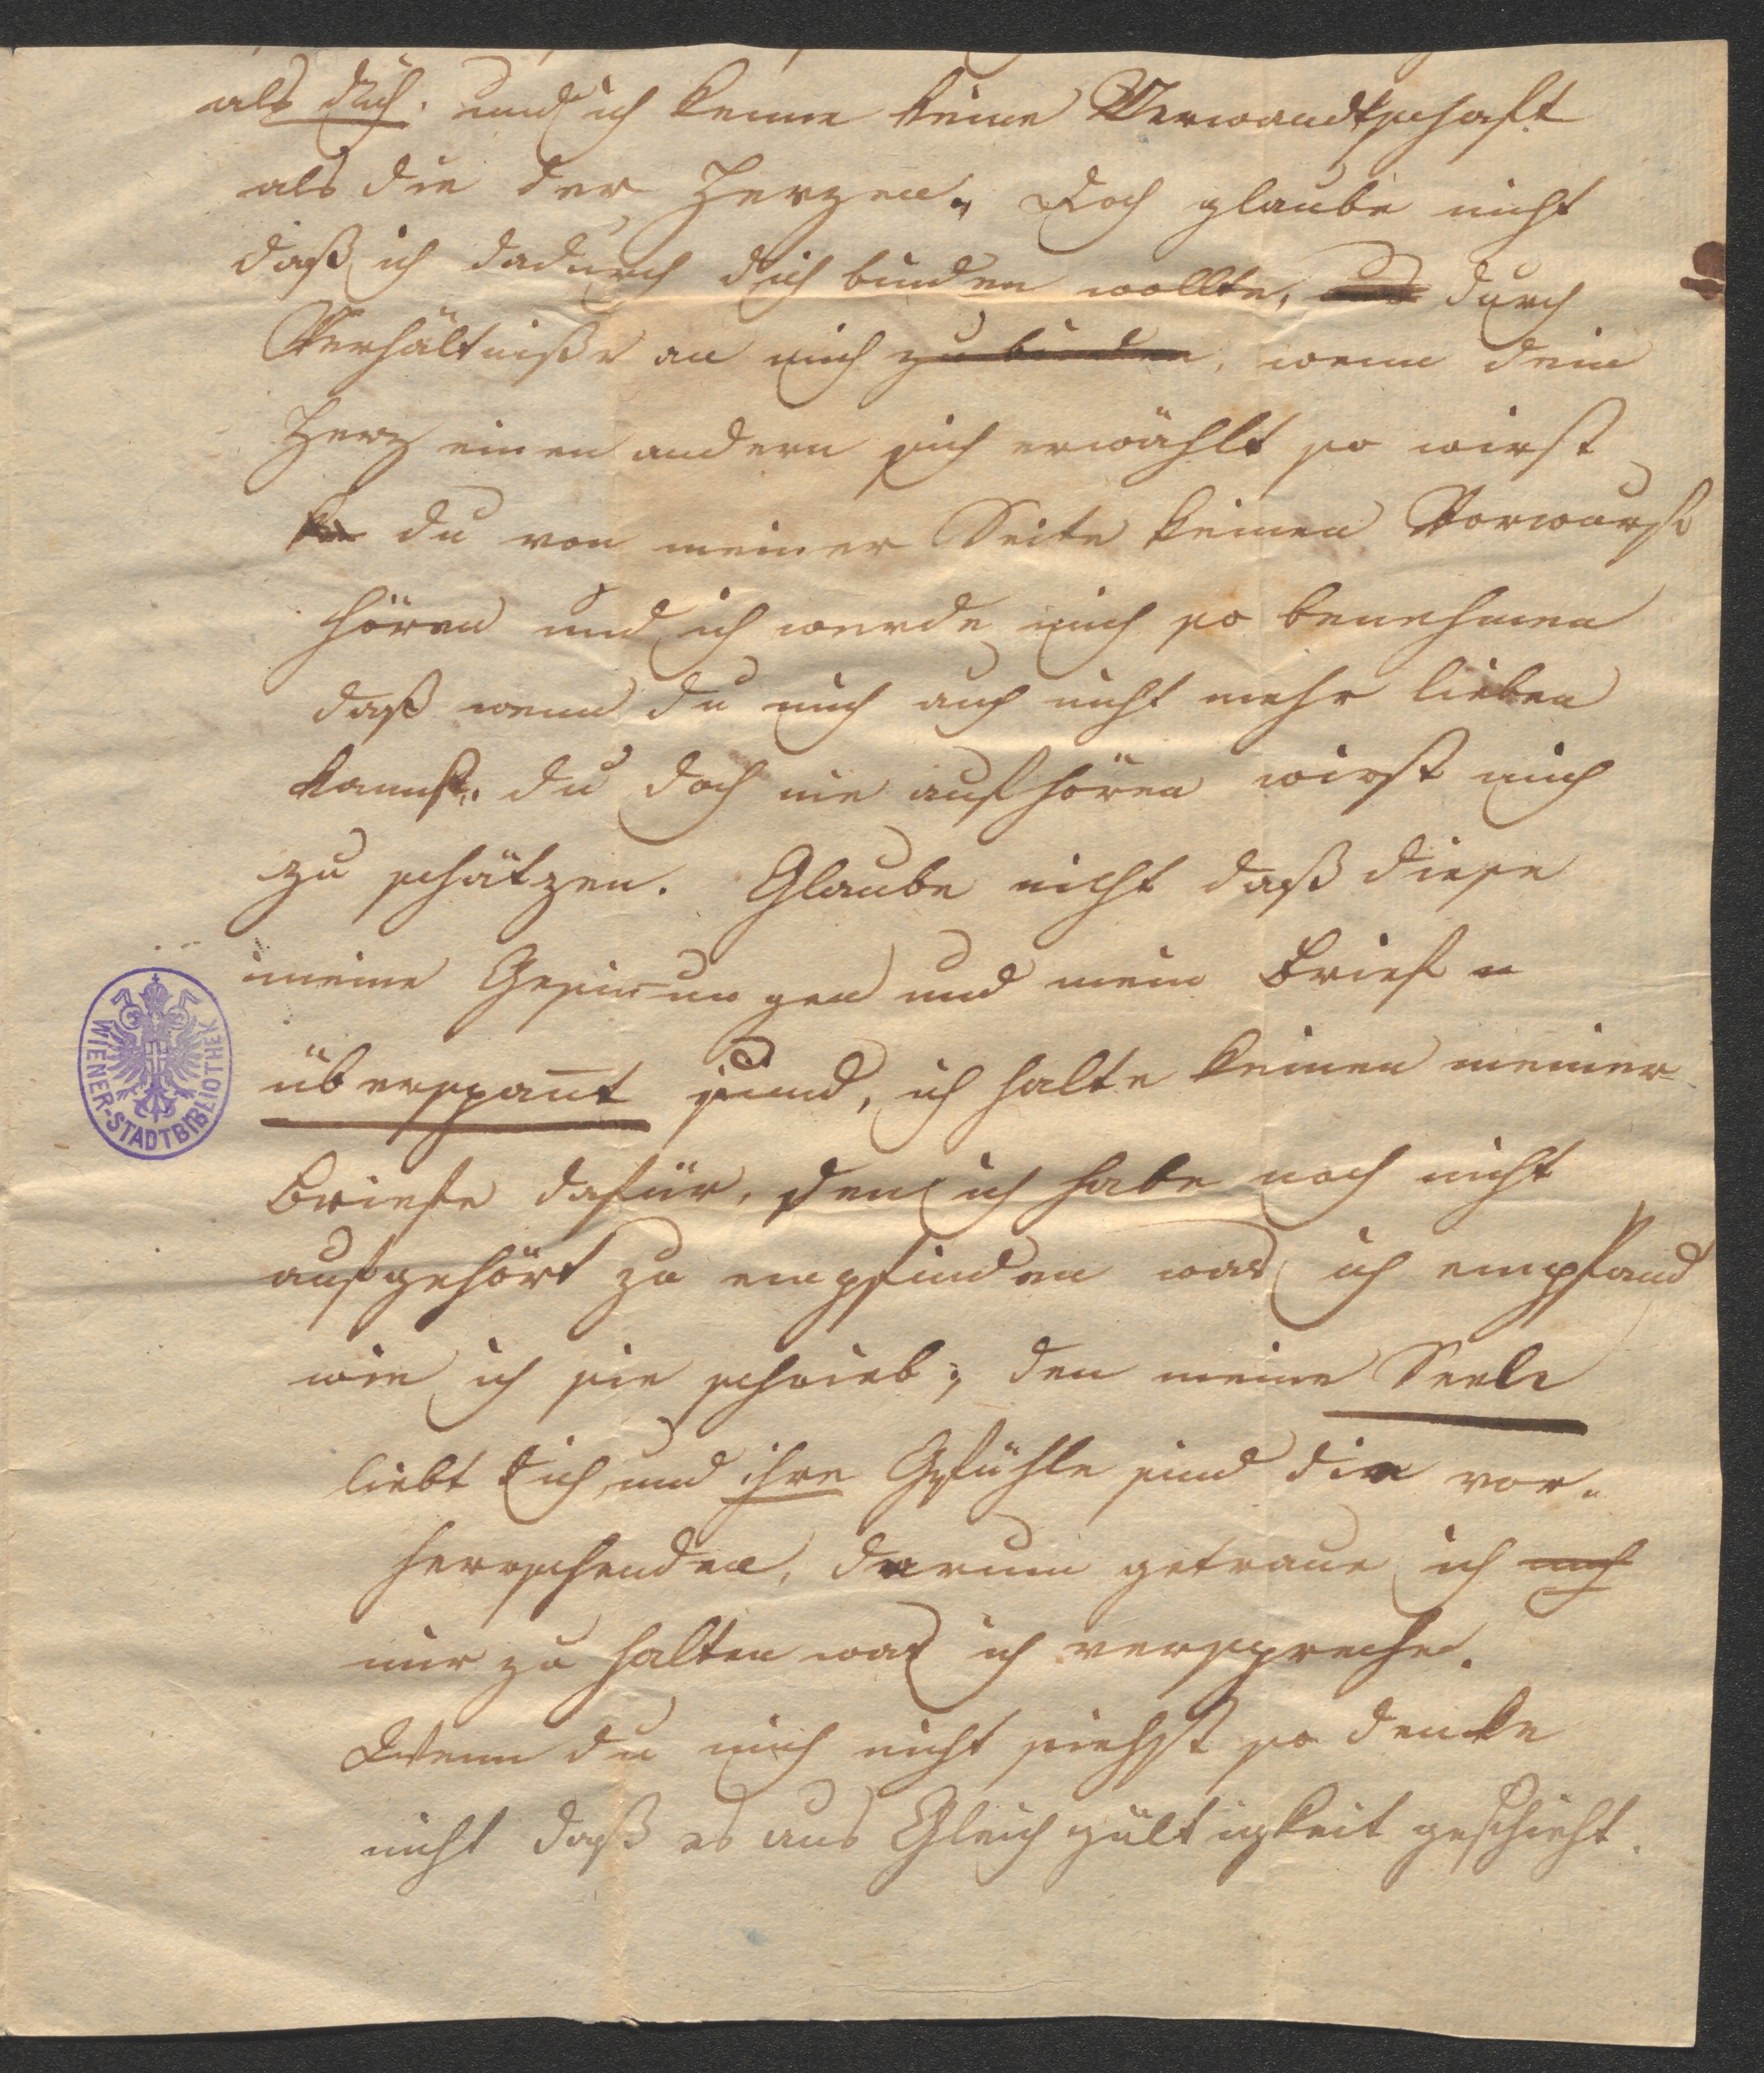 als dich. und ich kenne keine Verwandtschaft
als die der Herzen. Doch glaube nicht
daß ich dadurch dich binden wollte, und durch
Verhältniße an mich zu binden, wenn dein
Herz einen andern sich erwählt so wirst
du von meiner Seite keinen Vorwurf
hören und ich werde mich so benehmen
daß wenn du mich auch nicht mehr lieben
kannst. du doch nie aufhören wirst mich
zu schätzen. Glaube nicht daß diese
meine Gesinungen und mein Brief
überspant sind, ich halte keinen meiner
Briefe dafür, den ich habe noch nicht
aufgehört zu empfinden was ich empfand
wie ich sie schrieb; den meine Seele
liebt dich und ihre Gefühle sind die vor-
herrschenden, darum getraue ich mich
mir zu halten was ich verspreche.
Wenn du mich nicht siehst so denke
nicht daß es aus Gleichgültigkeit geschieht.
WIENER-STADTBIBLIOTHEK